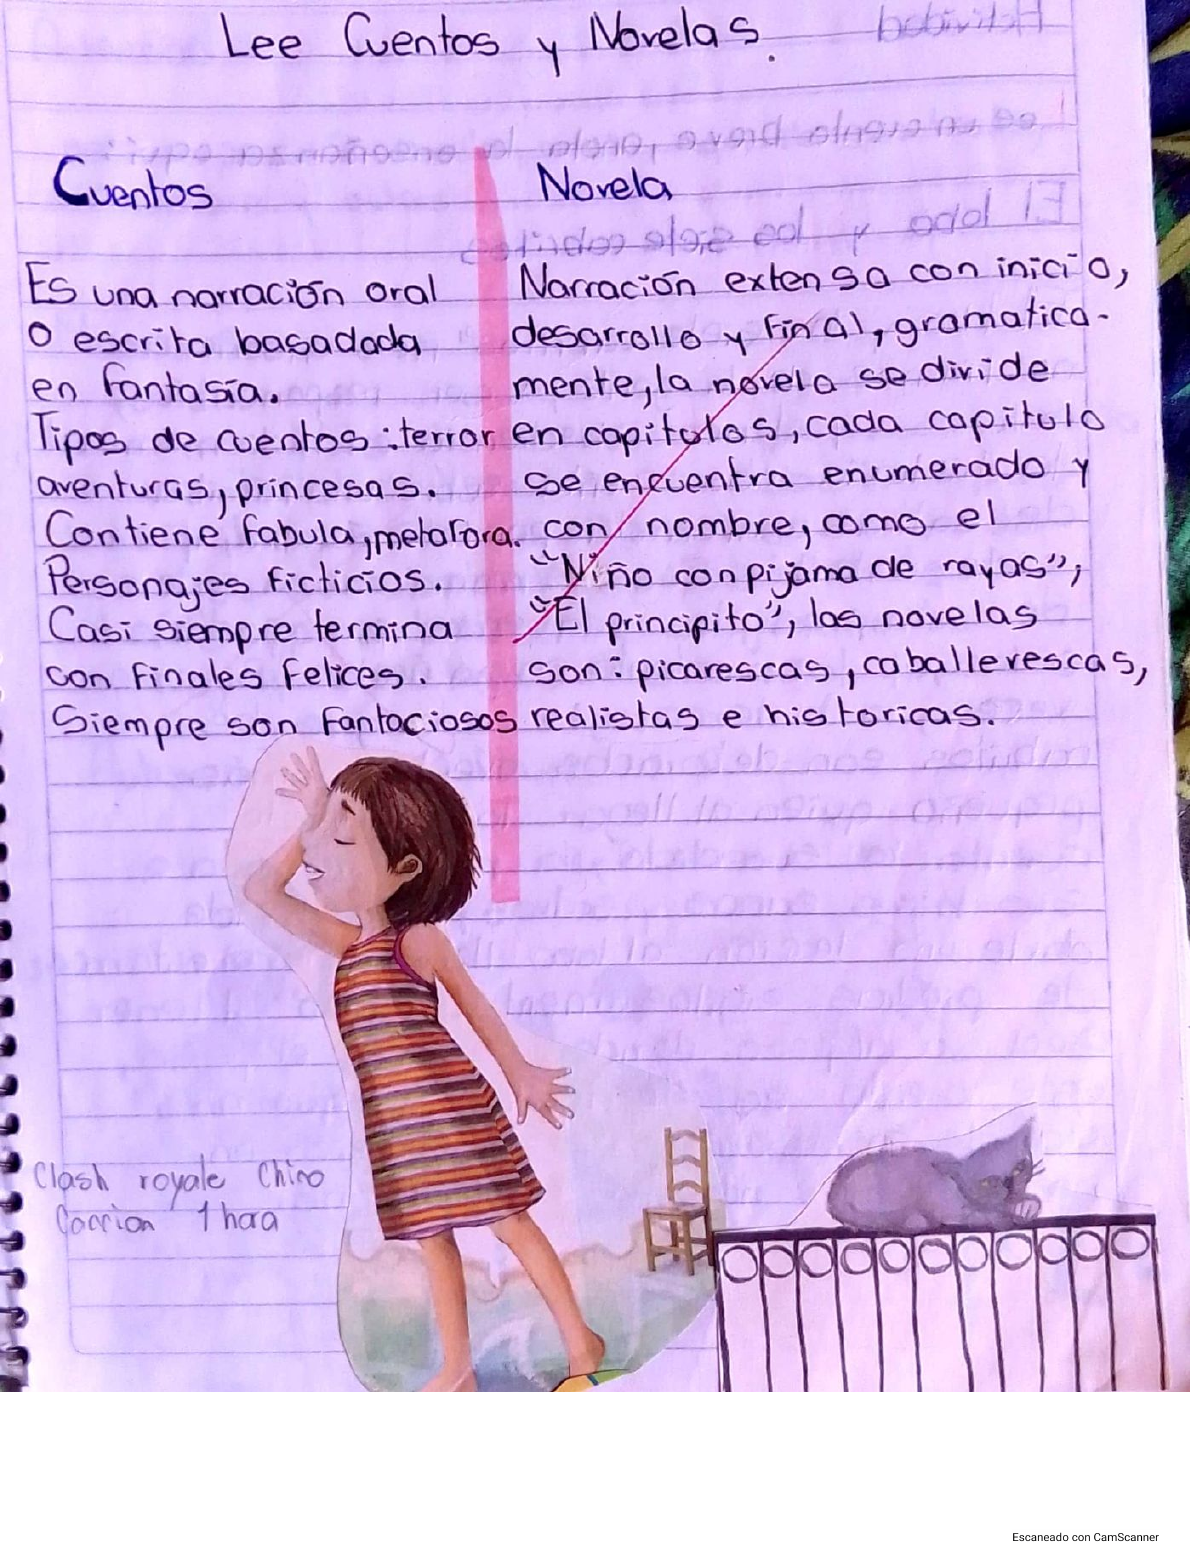 Lee Cuentos y Novelas.
Cuentos
Es una narración oral
O escrita basadada
en fantasía.
Tipos de cuentos: terror
aventuras, princesas.
Contiene fabula, metafora.
Personajes ficticios.
Casi siempre termina
con finales felices.
Siempre son fantaciosos
Novela
Narración extensa con inicio,
desarrollo y final, gramatica-
mente, la novela se divide
en capitulos, cada capitulo
se encuentra enumerado y
con nombre, como el
"Niño con pijama de rayas",
"El principito", las novelas
son: picarescas, caballerescas,
realistas e historicas.
Clash royale Chino
Coccion 1 hora
Escaneado con CamScanner